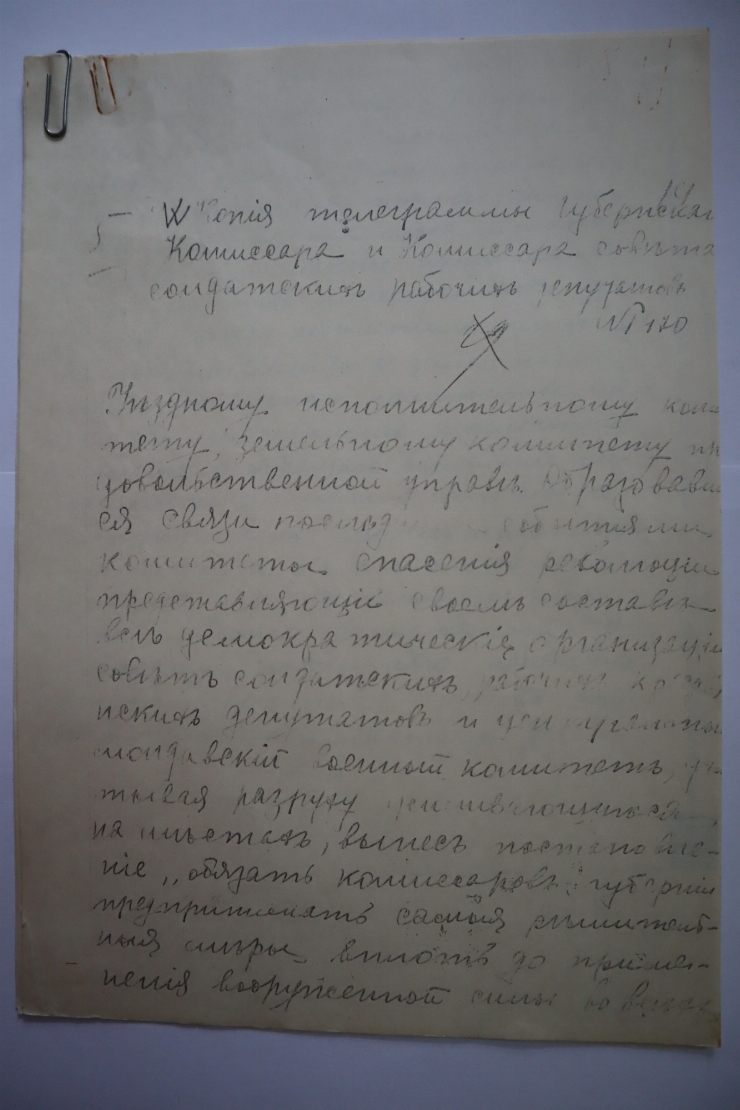 Копія телеграммы Губернскаг
Комиссара и Комиссара совѣта
солдатскихъ рабочихъ депутатовъ
№ 170
Уѣздному исполнительному коми
тету, земельному комитету пр
довольственной управѣ. Образовавш
ся связи послѣд событіями
комитеты спасенія революціи
представляющій своемъ составѣ
всѣ демократическія организаціи
совѣтъ солдатскихъ, рабочихъ
нскихъ депутатовъ и центральный
молдавскій военный комитетъ, учи
тывая разруху
на мѣстахъ, вынесъ постановле-
ніе „обязать комиссаровъ губерніи
предпринимать самыя рѣшитель-
ныя мѣры вплоть до примѣ-
ненія вооруженной силы во всѣхъ